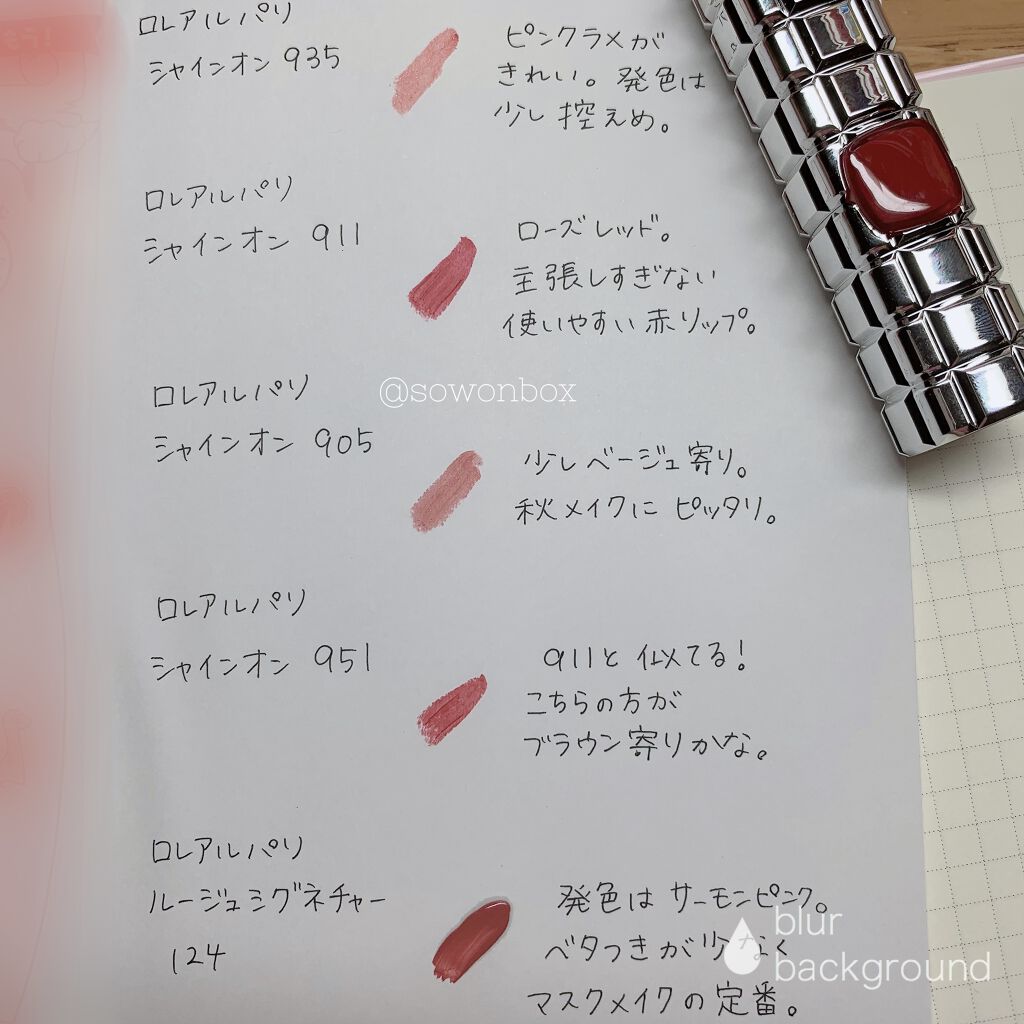 ロレアルパリ
シャインオン 935
ピンクラメが
きれい。発色は
少し控えめ。
ロレアルパリ
シャインオン 911
ローズレッド。
主張しすぎない
使いやすい赤リップ。
@sowonbox
ロレアルパリ
シャインオン 905
少しベージュ寄り。
秋メイクにピッタリ。
ロレアルパリ
シャインオン 951
911と似てる!
こちらの方が
ブラウン寄りかな。
ロレアルパリ
ルージュシグネチャー
124
発色はサーモンピンク。
ベタつきが少なく
マスクメイクの定番。
blur
background